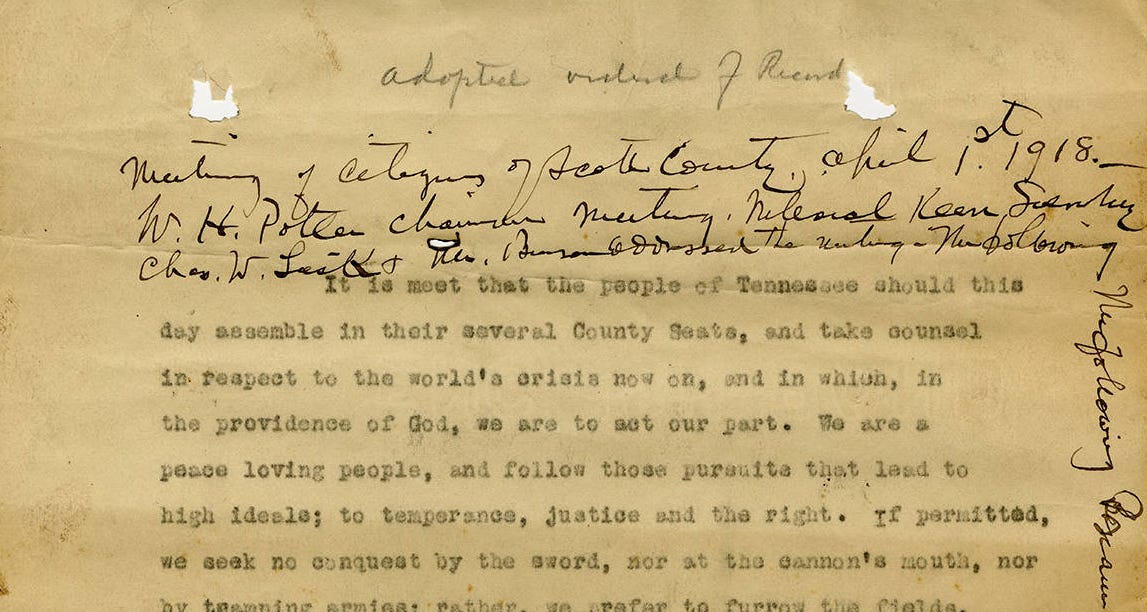 adopted ordered of Record
Meeting of Citizens of Scott County, April 1.st 1918.—
W. H. Potter Chairman Meeting. Keen, Secretary
Chas. W. & addressed the meeting - The following
It is meet that the people of Tennessee should this
day assemble in their several County Seats, and take counsel
in respect to the world's crisis now on, and in which, in
the providence of God, we are to act our part. We are a
peace loving people, and follow those pursuits that lead to
high ideals; to temperance, justice and the right. If permitted,
we seek no conquest by the sword, nor at the cannon's mouth, nor
by tramping armies; rather, we prefer to furrow the fields,
The following